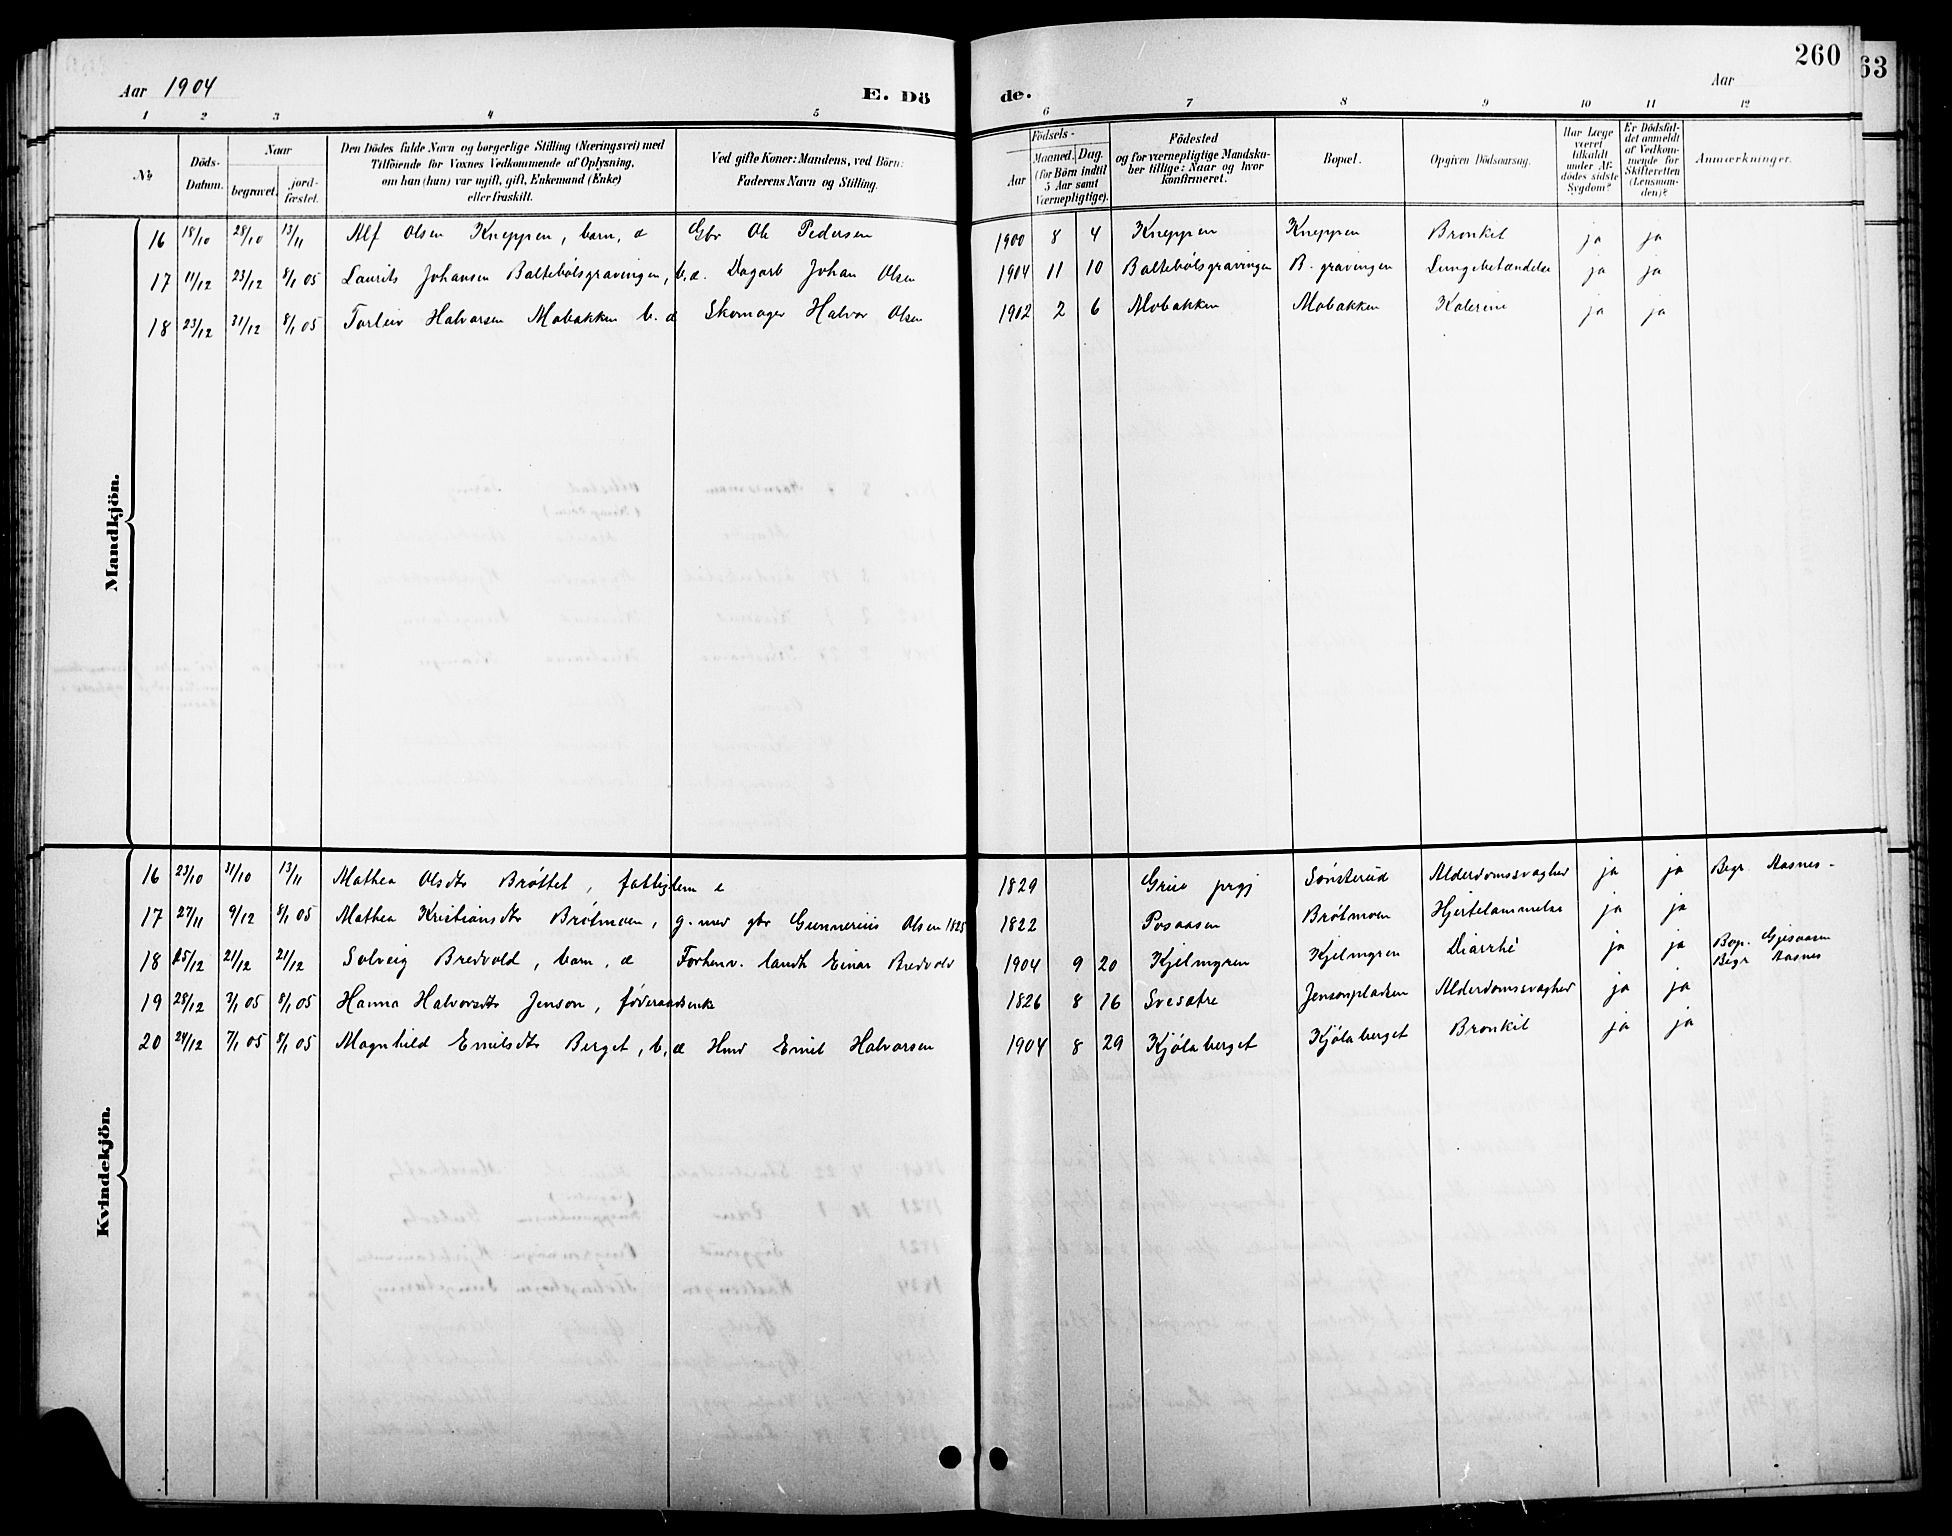 260
63
Aar 1904
E. Dö
de.
Aar
1 2 3 4 5 6 7 8 9 10 11 12
№
Döds-
Datum.
Naar
begravet.
jord-
fæstet.
Den Dödes fulde Navn og borgerlige Stilling (Næringsvei) med
Tilföiende for Voxnes Vedkommende af Oplysning,
om han (hun) var ugift, gift, Enkemand (Enke)
eller fraskilt.
Ved gifte Koner: Mandens, ved Börn:
Faderens Navn og Stilling.
Födsels-
Aar
Maaned. Dag.
(for Börn indtil
5 Aar samt
Værnepligtige).
Födested
og for værnepligtige Mandska-
ber tillige: Naar og hvor
konfirmeret.
Bopæl.
Opgiven Dödsaarsag.
Har Læge
været
tilkaldt
under Af-
dödes sidste
Sygdom?
Er Dödsfal-
det anmeldt
af Vedkom-
mende for
Skifteretten
(Lensman-
den)?
Anmærkninger.
Mandkjön.
16 18/10 28/10 13/11 Alf Olsen Kneppen, barn, æ Gbr Ole Pedersen 1900 8 4 Kneppen Kneppen Bronkit ja ja
17 11/12 23/12 8/1 05 Laurits Johansen Baltebølsgravingen, b. æ. Dagarb Johan Olsen 1904 11 10 Baltebølsgravingen B. gravingen Lungebetændelse ja ja
18 23/12 31/12 8/1 05 Torleiv Halvorsen Mobakken b. æ Skomager Halvor Olsen 1902 2 6 Mobakken Mobakken Kolerine ja ja
Kvindekjön.
16 23/10 31/10 13/11 Mathea Olsdtr Brøttet, fattiglem e 1829 Grue prgj Sønsterud Alderdomssvaghed ja ja Begr. Aasnes -
17 27/11 9/12 8/1 05 Mathea Kristiansdtr Brøtmoen, g. med gbr Gunnerius Olsen 1825 1822 Posaasen Brøtmoen Hjertelammelse ja ja
18 15/12 21/12 21/12 Solveig Bredvold, barn, æ Forhenv. landh Einar Bredvold 1904 9 20 Kjelmyren Kjelmyren Diarrhé ja ja Bop. Gjesaasen
Begr Aasnes
19 28/12 3/1 05 8/1 05 Hanna Halvorsdtr Jenson, føderaadsenke 1826 8 16 Svesætre Jensonpladsen Alderdomssvaghed ja ja
20 24/12 7/1 05 8/1 05 Magnhild Emilsdtr Berget, b, æ Hmd Emil Halvorsen 1904 8 29 Kjølaberget Kjølaberget Bronkit ja ja